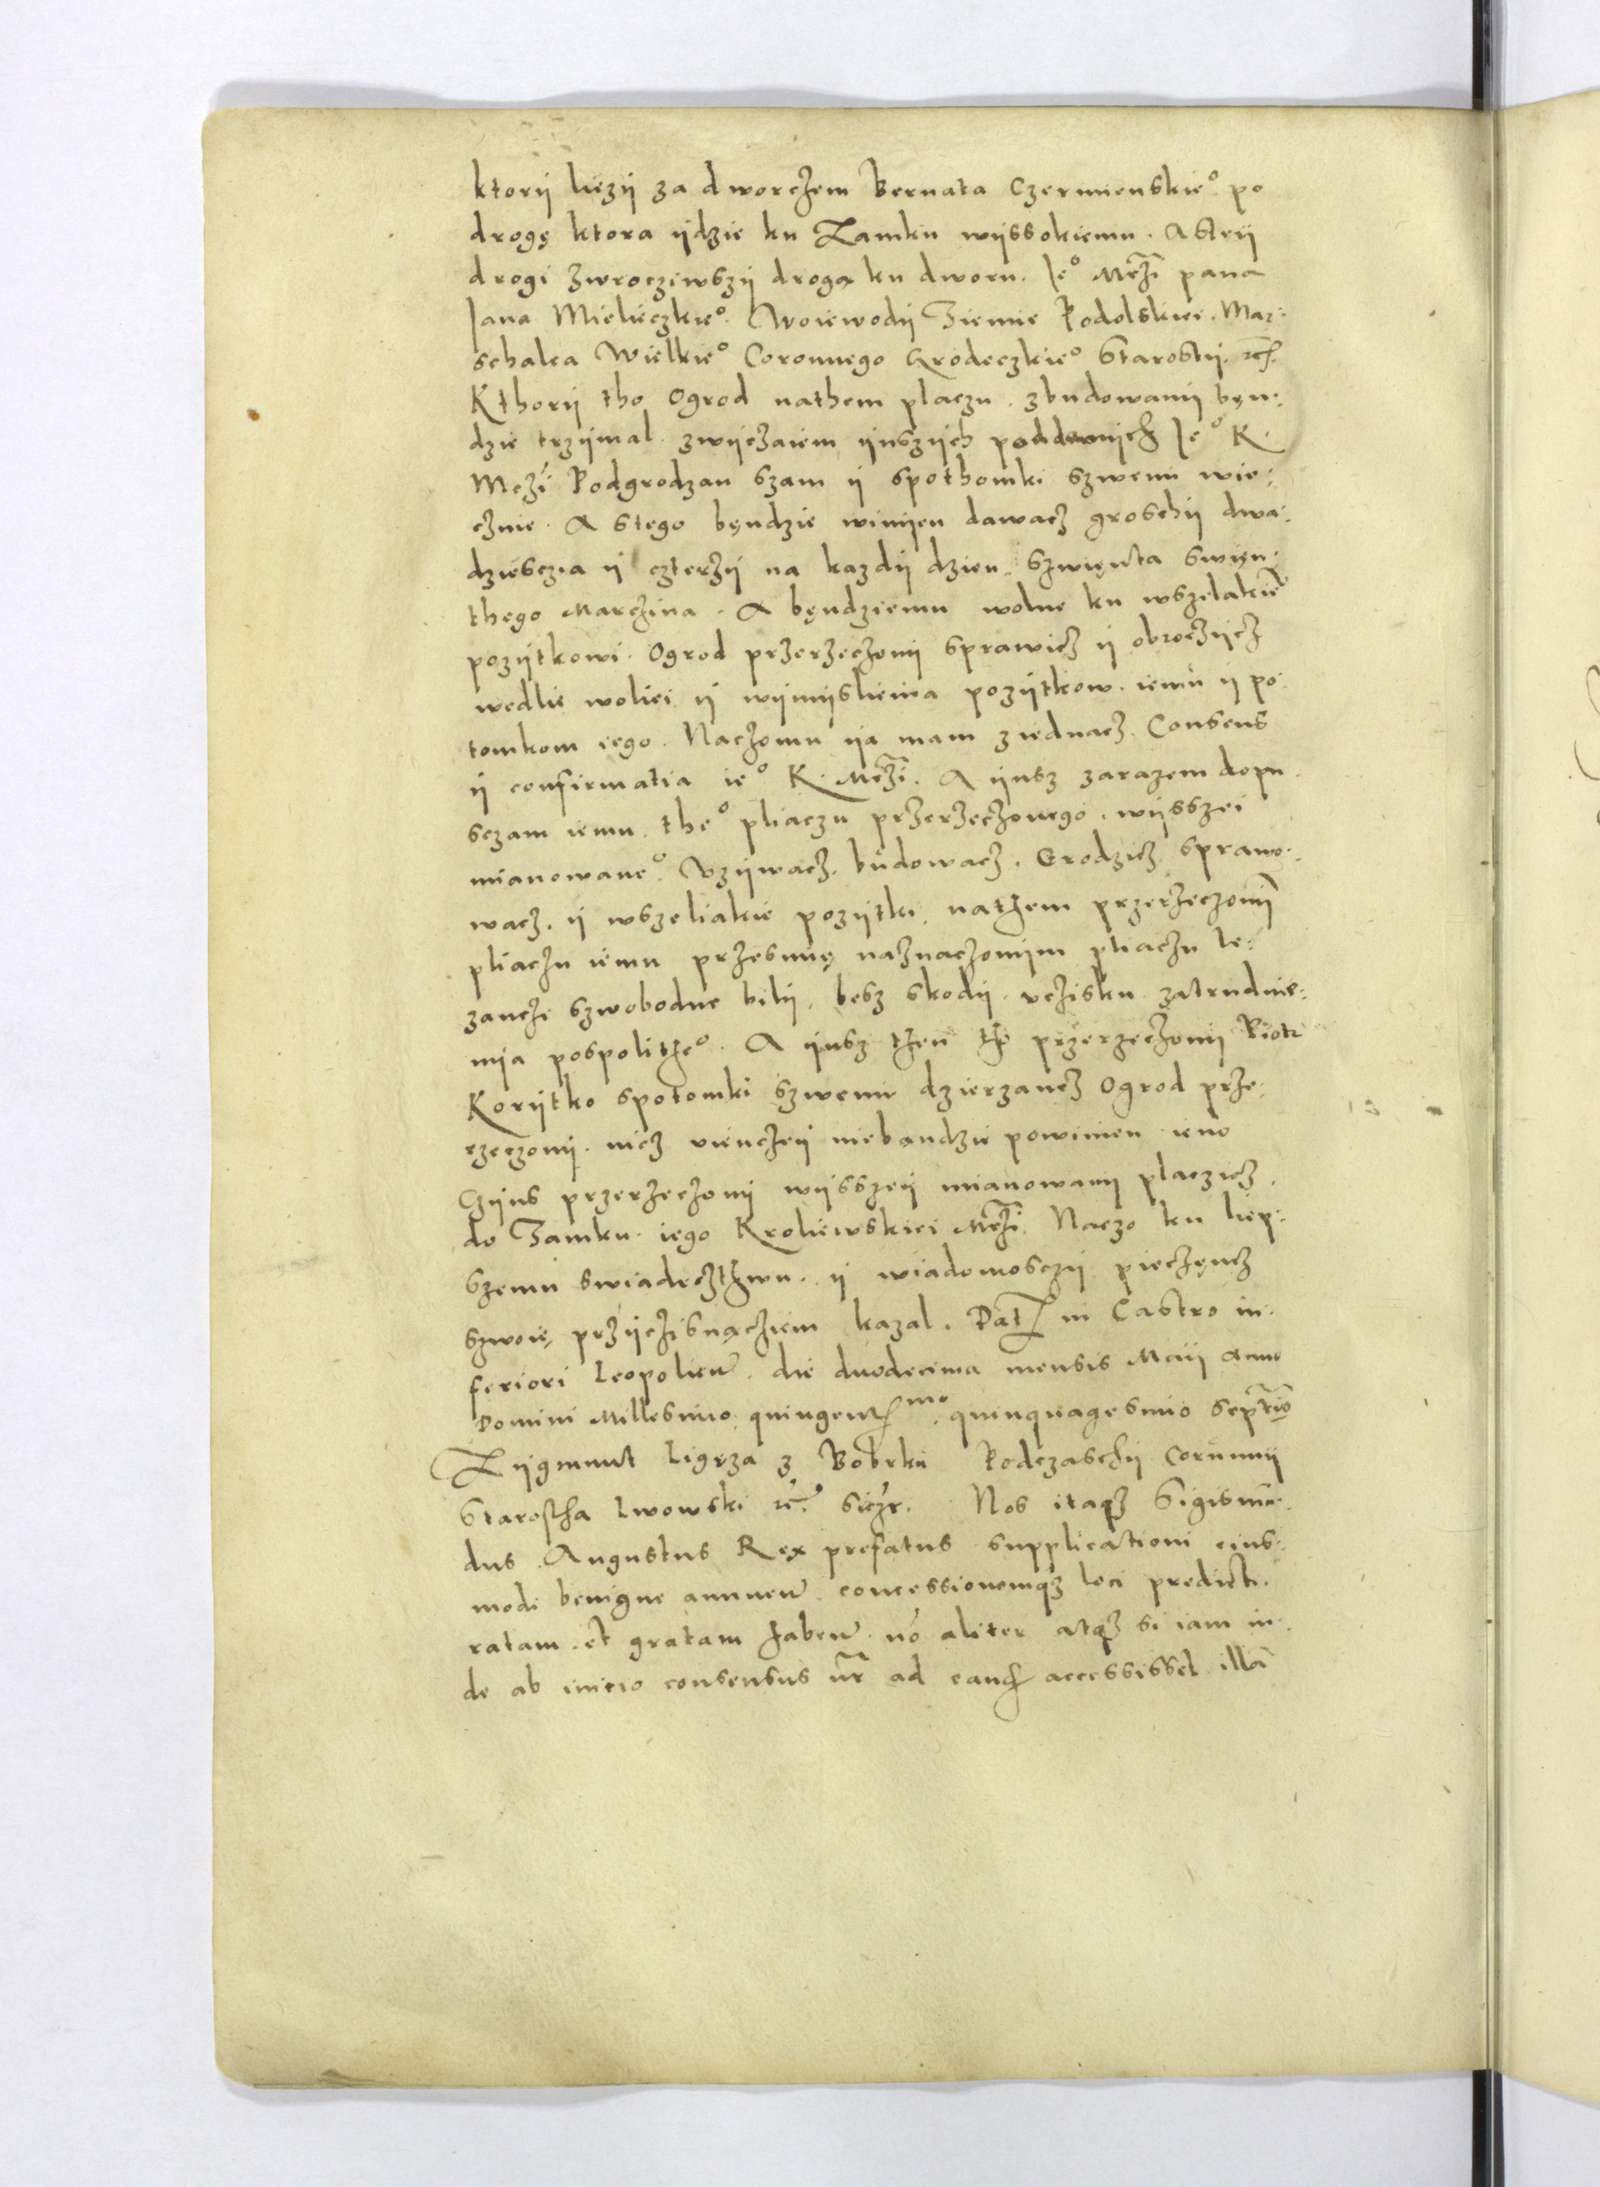 ktorÿ lieżÿ za dworczem Bernata Czermienskie° po
drogę ktora ÿdzie ku Zamku wÿssokiemu. A stÿ
drogi zwrocziwszÿ drogą ku dworu. Je° Mczi pana
Jana Mieliezkie° Woiewodÿ Ziemie Podolskiei. Mar:
schalca Wielkie° Coronnego Grodeczkie° Starostÿ.
Kthorÿ tho Ogrod nathem placzu. zbudowanÿ bęn:
dzie trzÿmal. zwÿczaiem ÿnszÿch poddanÿch Je° K.
Mczi Podgrodzan szam ÿ spothomki szwemi wie:
cznie. A stego będzie winÿen dawacz groschÿ dwa:
dziescia ÿ czterzÿ na kazdÿ dzien szwięta swięn:
thego Marczina. A będziemu wolne ku wszelakie
pozÿtkowi. Ogrod przerzeczonÿ sprawicz ÿ obroczÿcz
wedlie woliei ÿ wÿmÿslienia pozÿtkow. iemu ÿ po
tomkom iego. Naczomu ÿa mam ziednacz. Consens
ÿ confirmatia ie° K. Mczi. A ÿusz zarazem dopu
sczam iemu. the° pliaczu przerzeczonego. wÿsszei
mianowane° Vzÿwacz. budowacz. Grodzicz sprawo:
wacz. ÿ wszeliakie pozÿtki nathem przerzeczonÿ
pliaczu iemu przesmię naznaczonim pliaczu le:
zanczi szwobodne bilÿ. besz skodÿ. vczisku. zatrudnie:
nia pospolithe°. A ÿusz then tho przerzeczonÿ Piotr
Korÿtko spotomki szwemi dzierzancz Ogrod prze:
rzeczonÿ. nicz vienczeÿ niebandzie powinien ieno
Czÿns przerzeczonÿ wÿsszeÿ mianowanÿ placzicz.
do Zamku iego Kroliewskiei Mczi. Naczo ku liep:
szemu swiadecztwu. ÿ wiadomosczÿ pieczęncz
szwoię przÿczisnączem kazal. Dat in Castro in
feriori Leopolien. die duodecima mensis Maii Anno
Domini Millesimo quingent mo quinquagesimo septimo
Zÿgmunt Ligęza z Bobrku Podczaschÿ Corunnÿ
Starostha Lwowski Nos itaqz Sigismu:
dus Augustus Rex prefatus supplicationi eius
modi benigne annuen. concessionemqz loci predicti.
ratam. et gratam haben. nō aliter atqz si iam in
de ab initio consensus nr ad eand accessisset. illā